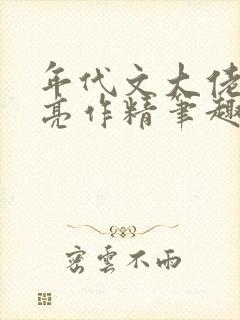 年代文大佬
亮作精笔趣
密雲不雨